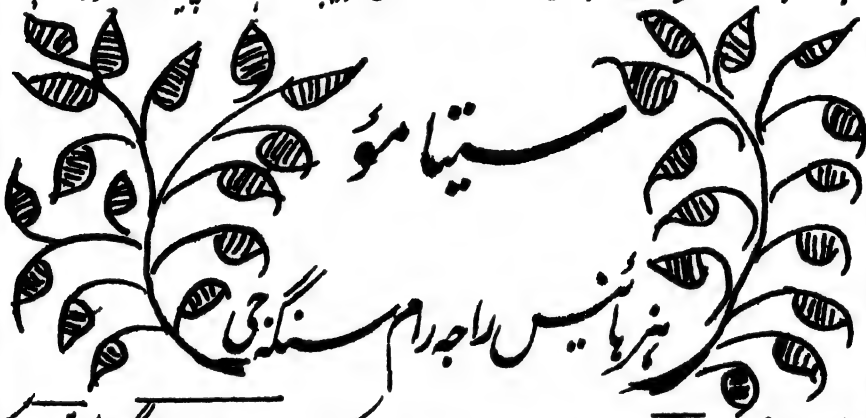 سیتا مؤ
ہز ہائینس راجہ رام سنگھ جی